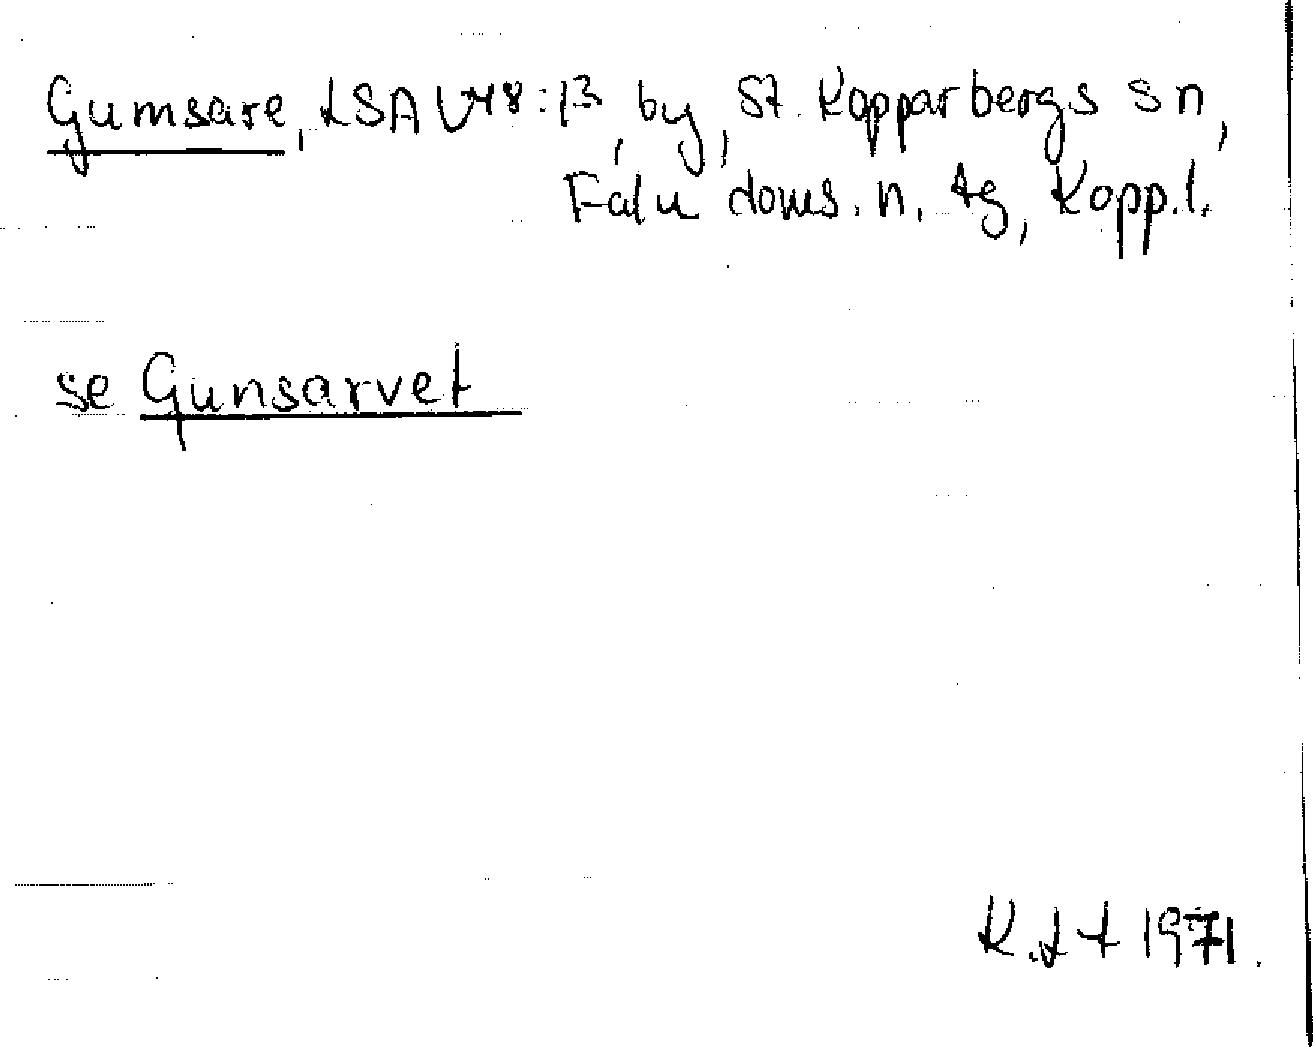 Gumsare, LSA U48:13, by, St. Kopparbergs sn,
Falu doms. n. tg, Kopp. l.
se Gunsarvet
1971.